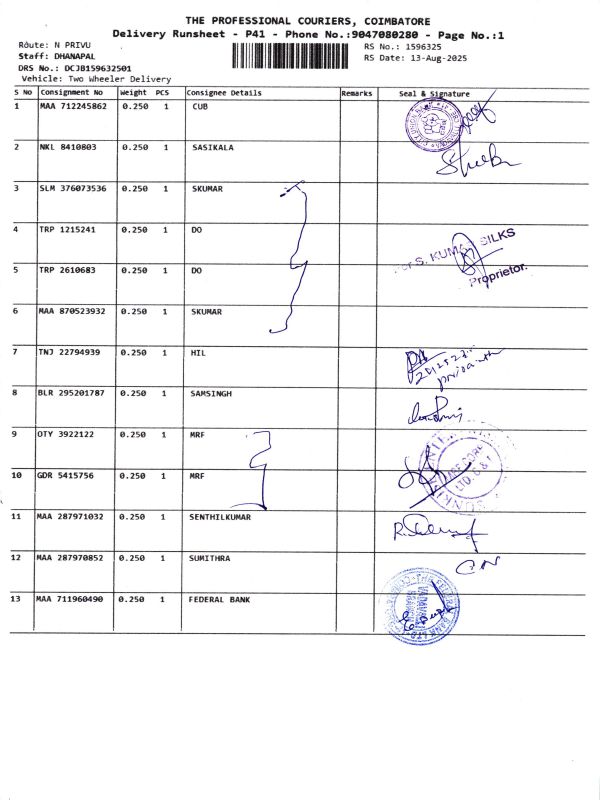 THE PROFESSIONAL COURIERS, COIMBATORE
Delivery Runsheet - P41 - Phone No.:9047080280 - Page No.:1
Route: N PRIVU
RS No.: 1596325
Staff: DHANAPAL
RS Date: 13-Aug-2025
DRS No.: DCJB159632501
Vehicle: Two Wheeler Delivery
S No Consignment No Weight PCS Consignee Details Remarks Seal & Signature
1 MAA 712245862 0.250 1 CUB
2 NKL 8410803 0.250 1 SASIKALA
3 SLM 376073536 0.250 1 SKUMAR
4 TRP 1215241 0.250 1 DO
S. KUMAR SILKS
5 TRP 2610683 0.250 1 DO
Proprietor.
6 MAA 870523932 0.250 1 SKUMAR
7 TNJ 22794939 0.250 1 HIL
8 BLR 295201787 0.250 1 SAMSINGH
9 OTY 3922122 0.250 1 MRF
10 GDR 5415756 0.250 1 MRF
11 MAA 287971032 0.250 1 SENTHILKUMAR
12 MAA 287970852 0.250 1 SUMITHRA
13 MAA 711960490 0.250 1 FEDERAL BANK